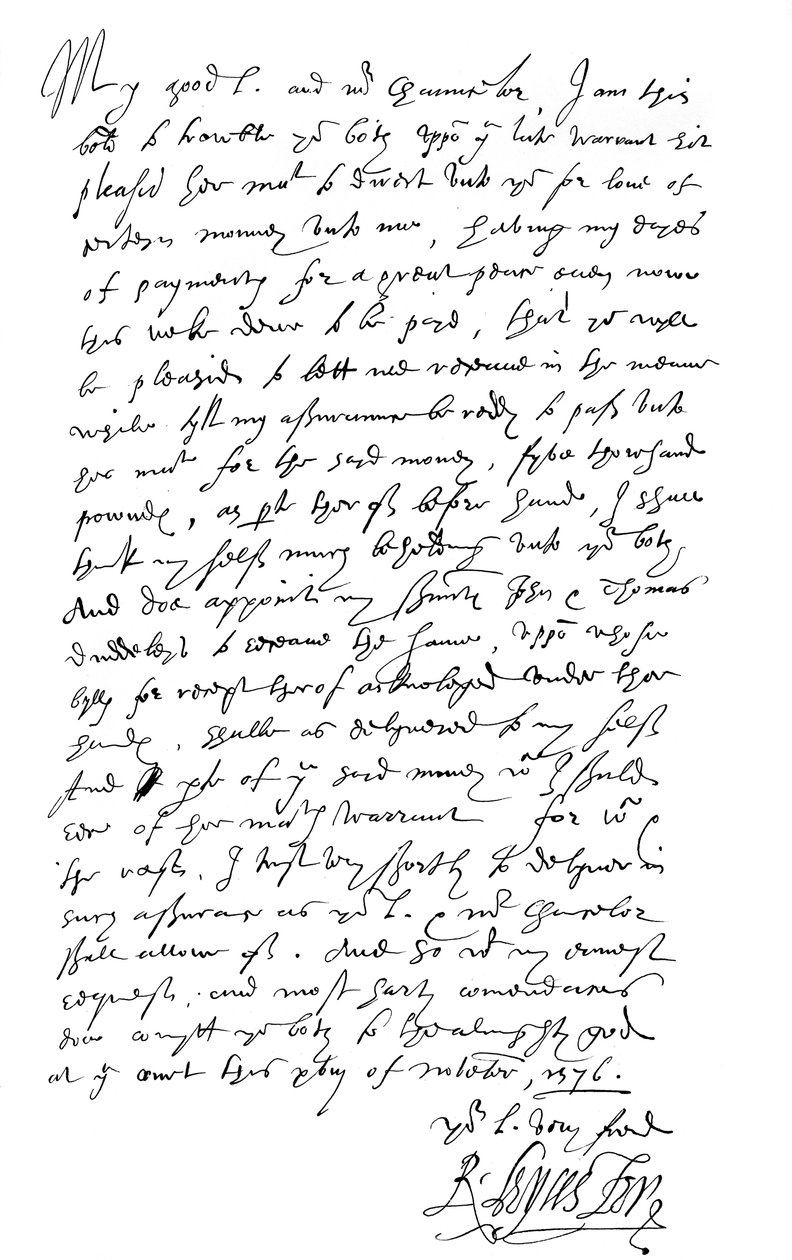 My good L. and mr Chauncelor, I am this
bold to trowble yow both uppō yͤ late warrant hit
pleasid her matⁱ to direct unto yow for lone of
certeyn monney unto me, having my dayes
of paymentes for a great peace even nowe
this weke dewe to be payd, that yow wyll
be pleasid to lett me receave in the meane
while tyll my assuraunce be reddy to pass unto
her matⁱ for the sayd money, fyve thowsand
powndes, as pte therof before hande, I shall
think my self much beholding unto yow both,
And doe appoint my servantes John & Thomas
Duddeleys to receave the same, uppō whose
bylls for receipt therof acknoleged under ther
handes, shalbe as delyvered to my self
And pte of yͤ sayd money wͨ I shuld
have of her matⁱ warrant for wͨ &
the rest, I trust very shortly to delyver in
such assurance as yoʳ L. & mr Chancelor
shall allowe of. And so wᵗ my ernest
request, and most harty comendacions
doe comytt yow both to the almighty god
at yͤ court this xviij of november, 1576.
yoʳ L. very frend
R. Leycester